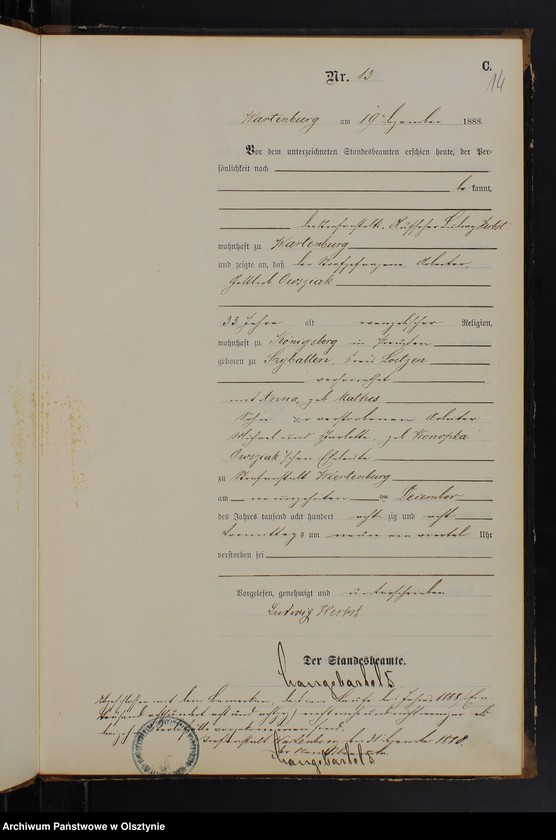 C.
14
Nr. 13
Wartenburg am 19 Dezember 1888.
Vor dem unterzeichneten Standesbeamten erschien heute, der Per-
sönlichkeit nach
be kannt,
der Strafanstalts-Aufseher Ludwig Herbst
wohnhaft zu Wartenburg
und zeigte an, daß der Strafgefangene, Arbeiter,
Gottlieb Owsziak
33 Jahre alt evangelischer Religion,
wohnhaft zu Königsberg in Preußen
geboren zu Szyballen, Kreis Loetzen
verheirathet
mit Anna, geb. Mathes
Sohn der verstorbenen Arbeiter
Michael und geb.
Owsziak'schen Eheleute
zu Strafanstalt Wartenburg
am neunzehnten ten December
des Jahres tausend acht hundert acht zig und acht
Vormittags um neun ein viertel Uhr
verstorben sei
Vorgelesen, genehmigt und unterschrieben
Ludwig Herbst
Der Standesbeamte.
Langebartels
Abgeschlossen mit dem Bemerken, daß im Laufe des Jahres 1888 (Ein
tausend achthundert acht und achtzig)
sind.
Strafanstalt Wartenburg den 31 Dezember 1888.
Der Standesbeamte.
Langebartels
Archiwum Państwowe w Olsztynie